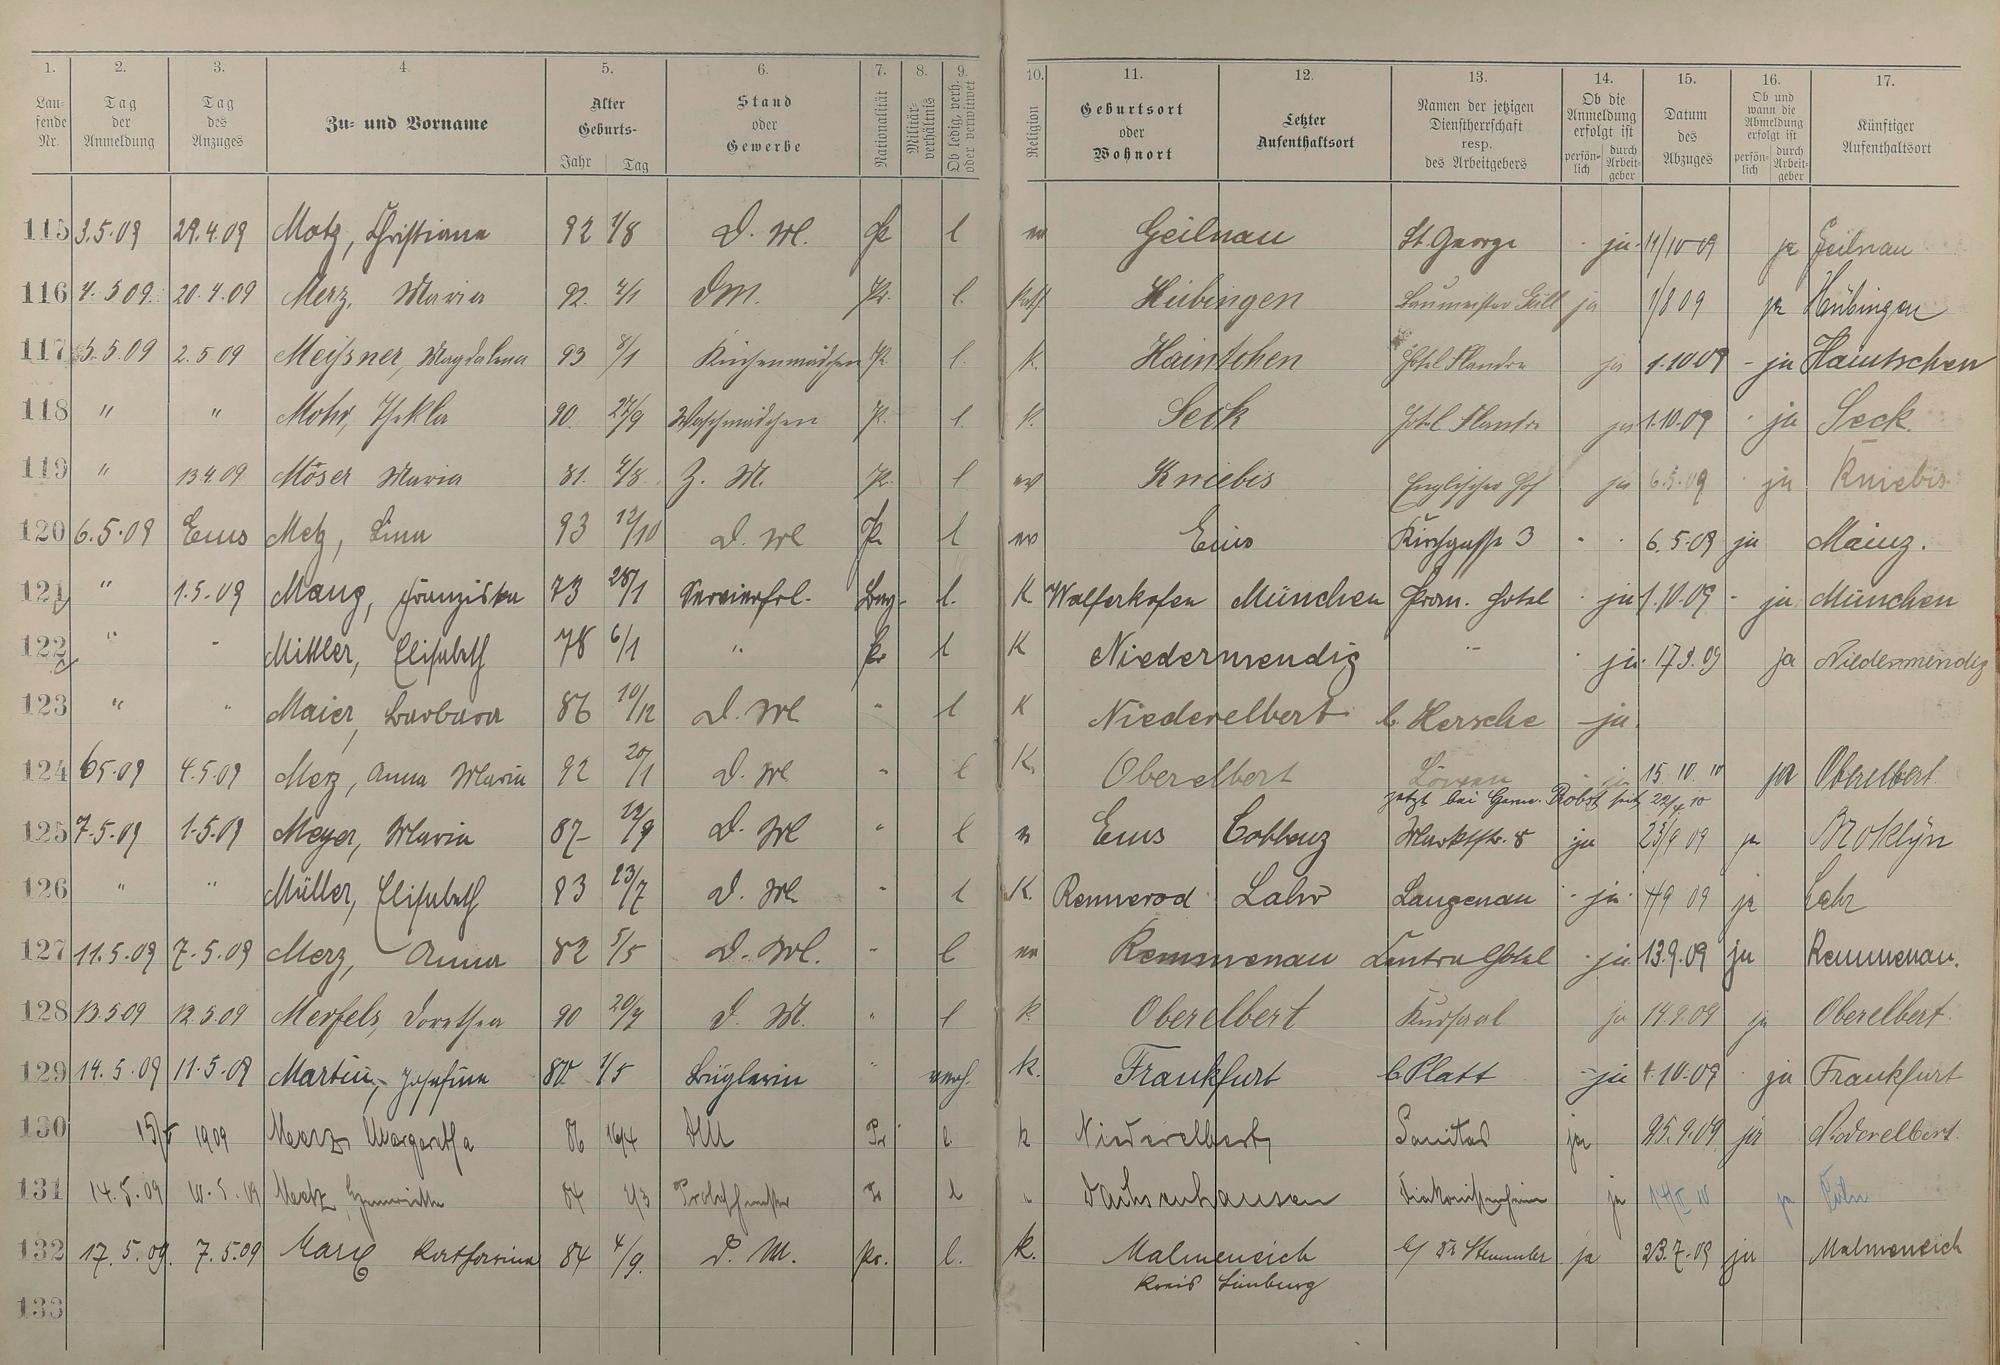 1. 2. 3. 4. 5. 6. 7. 8. 9. 10. 11. 12. 13. 14. 15. 16. 17.
Lau-fende Nr. Tag der Anmeldung Tag des Anzuges Zu- und Vorname Alter Geburts- Jahr Tag Stand oder Gewerbe Nationalität Militär-verhältnis Ob ledig, verh. oder verwitwet Religion Geburtsort oder Wohnort Letzter Aufenthaltsort Namen der jetzigen Dienstherrschaft resp. des Arbeitgebers Ob die Anmeldung erfolgt ist persön-lich durch Arbeit-geber Datum des Abzuges Ob und wann die Abmeldung erfolgt ist persön-lich durch Arbeit-geber Künftiger Aufenthaltsort
115 3.5.09 29.4.09 Motz, Christiane 92 1/8 D. M. Pr l ev Geilnau St. George ja 11/10 09 ja Geilnau
116 4.5 09 20.4.09 Merz, Maria 92. 2/1 DM. Pr. l. kath Hübingen Baumeister ja 1/8 09 ja Hübingen
117 5.5.09 2.5 09 Meißner, Magdalena 93 8/1 Küchenmädchen Pr l. k. Haintchen Hotel Flandre ja 1.10 09 - ja Haintschen
118 " " Mohr, Thekla 90. 27/9 Waschmädchen Pr. l. k. Seck Hotel Flandre ja 1.10.09 ja Seck.
119 " 13.4.09 Möser Maria 81. 4/8 Z. M. Pr. l ev Kniebis Englischer Hof ja 6.5.09 ja Kniebis
120 6.5.09 Ems Metz, Lina 93 12/10 D. M Pr l ev Ems Kirchgasse 3 6.5.09 ja Mainz.
121 " 1.5.09 Mang, Franziska 73 28/1 Servierfrl. Bay. l. K. Walferkofen München Prom. Hotel ja 1.10.09 - ja München
122 " " Mittler, Elisabeth 78 6/1 " Pr l K Niedermendig " ja 17.9.09 ja Niedermendig
123 " " Maier, Barbara 86 10/12 D. M " l K Niederelbert b. Hersche - ja.
124 6 5.09 4.5.09 Merz, Anna Maria 92 20/1 D. M " l K. Oberelbert Löwen ja 15.10.10 ja Oberelbert
jetzt bei Robst seit 22/4 10
125 7.5.09 1.5.09 Meyer, Maria 87 12/9 D. M " l Ems Coblenz Marktstr. 8 ja 23/9 09 ja Broklyn
126 " " Müller, Elisabeth 83 23/7 D. M. " l K. Rennerod Lahr Langenau - ja 4/9 09 ja Lahr
127 11.5.09 7.5.09 Merz, Anna 82 5/5 D. M. " l ev Kemmenau Centralhotel ja 13.9.09 ja Kemmenau.
128 13.5 09 12.5.09 Merfels, Dorothea 90 20/7 D. M. " l k. Oberelbert Kursaal ja 14.9.09 ja Oberelbert.
129 14.5.09 11.5.09 Martin, Josefine 80 1/5 Büglerin " verh. k. Frankfurt b. Platt - ja 1.10.09 ja Frankfurt
130 15/5 1909 Merz Margaretha 86 16/4 DM Pr l. k Niederelbert Sanitas ja 25.9.09 ja Niederelbert.
131 14.5.09 10.5.09 Metz 84 2/3 Pr l " Dachsenhausen Diakonissenheim ja ja Cöln
132 17.5.09. 7.5.09 Marx Katharina 84 4/9. D. M. Pr. l. K. Malmeneich b/ Stemmler ja 23.7.09 ja Malmeneich
Kreis Limburg
133